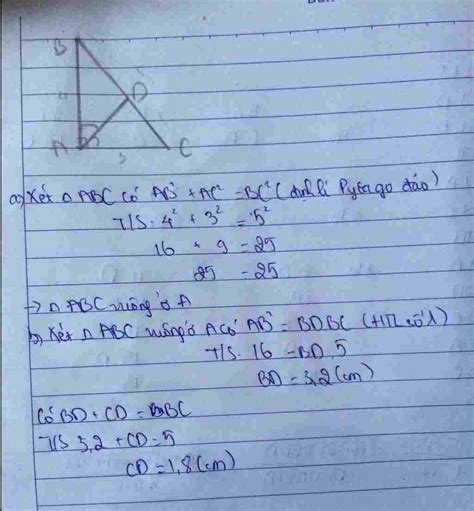 B
4
D
A
3
C
a) Xét △ ABC có AB² + AC² = BC² (định lí Pytago đảo)
T/S: 4² + 3² = 5²
16 + 9 = 25
25 = 25
→ △ ABC vuông ở A
b) Xét △ ABC vuông ở A có AB² = BD BC (HTL số 1)
T/S. 16 = BD . 5
BD = 3,2 (cm)
Có BD + CD = BC
T/S 3,2 + CD = 5
CD = 1,8 (cm)